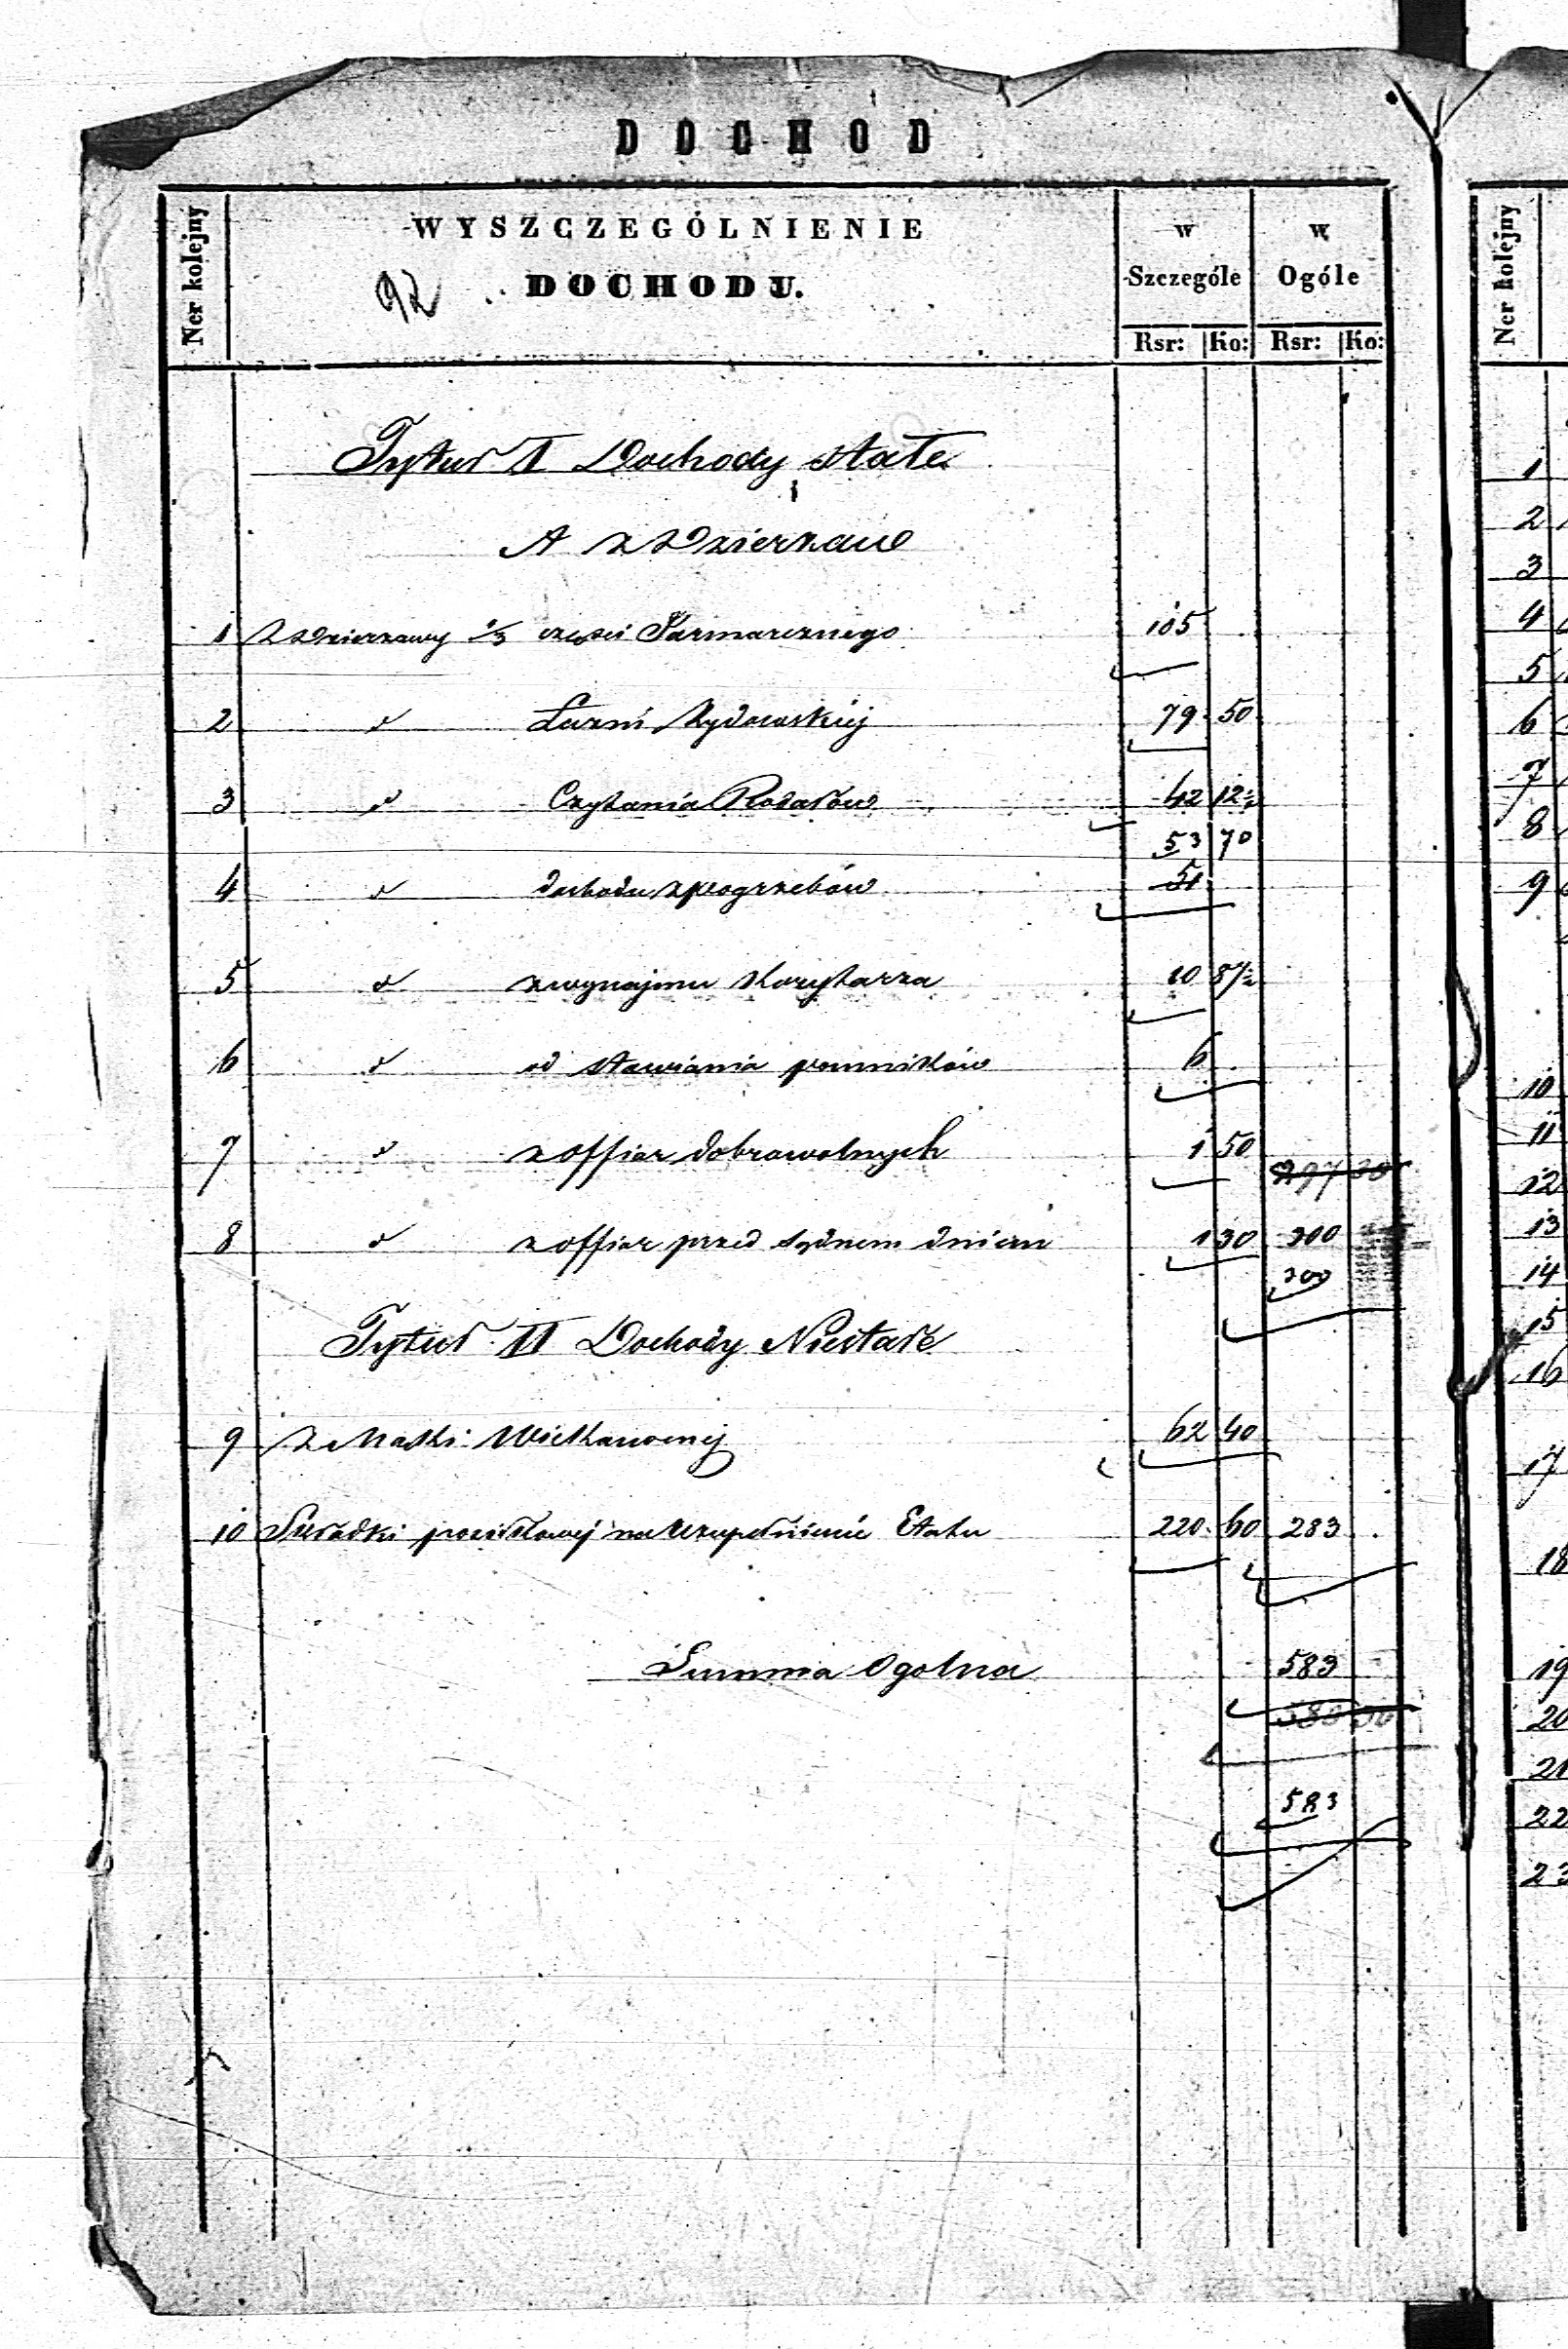 DOCHOD
Ner kolejny
WYSZCZEGÓLNIENIE
DOCHODU.
92
w Szczególe
w Ogóle
Rsr: Ko: Rsr: Ko:
Tytuł I Dochody stałe
A z Dzierzaw
1 z Dzierzawy 1/3 części Jarmarcznego 105
2 " Łazni Żydowskiéj 79 50
3 " Czytania Rodałów 42 12½
53 70
4 " dochodu z pogrzebów 51
5 " z wynajmu Korytarza 10 87½
6 " od stawiania pomników 6
7 " z offiar dobrowolnych 1 50
297 30
8 " z offiar przed sądnem dniem 1 30 300
300
Tytuł II Dochody Niestałe
9 z Mąski Wielkanocnej 62 40
10 Składki na uzupełnienie Etatu 220 60 283
Summa Ogolna 583
580 30
583
Ner kolejny
1
2
3
4
5
6
7
8
9
10
11
12
13
14
15
16
17
18
19
20
21
22
23